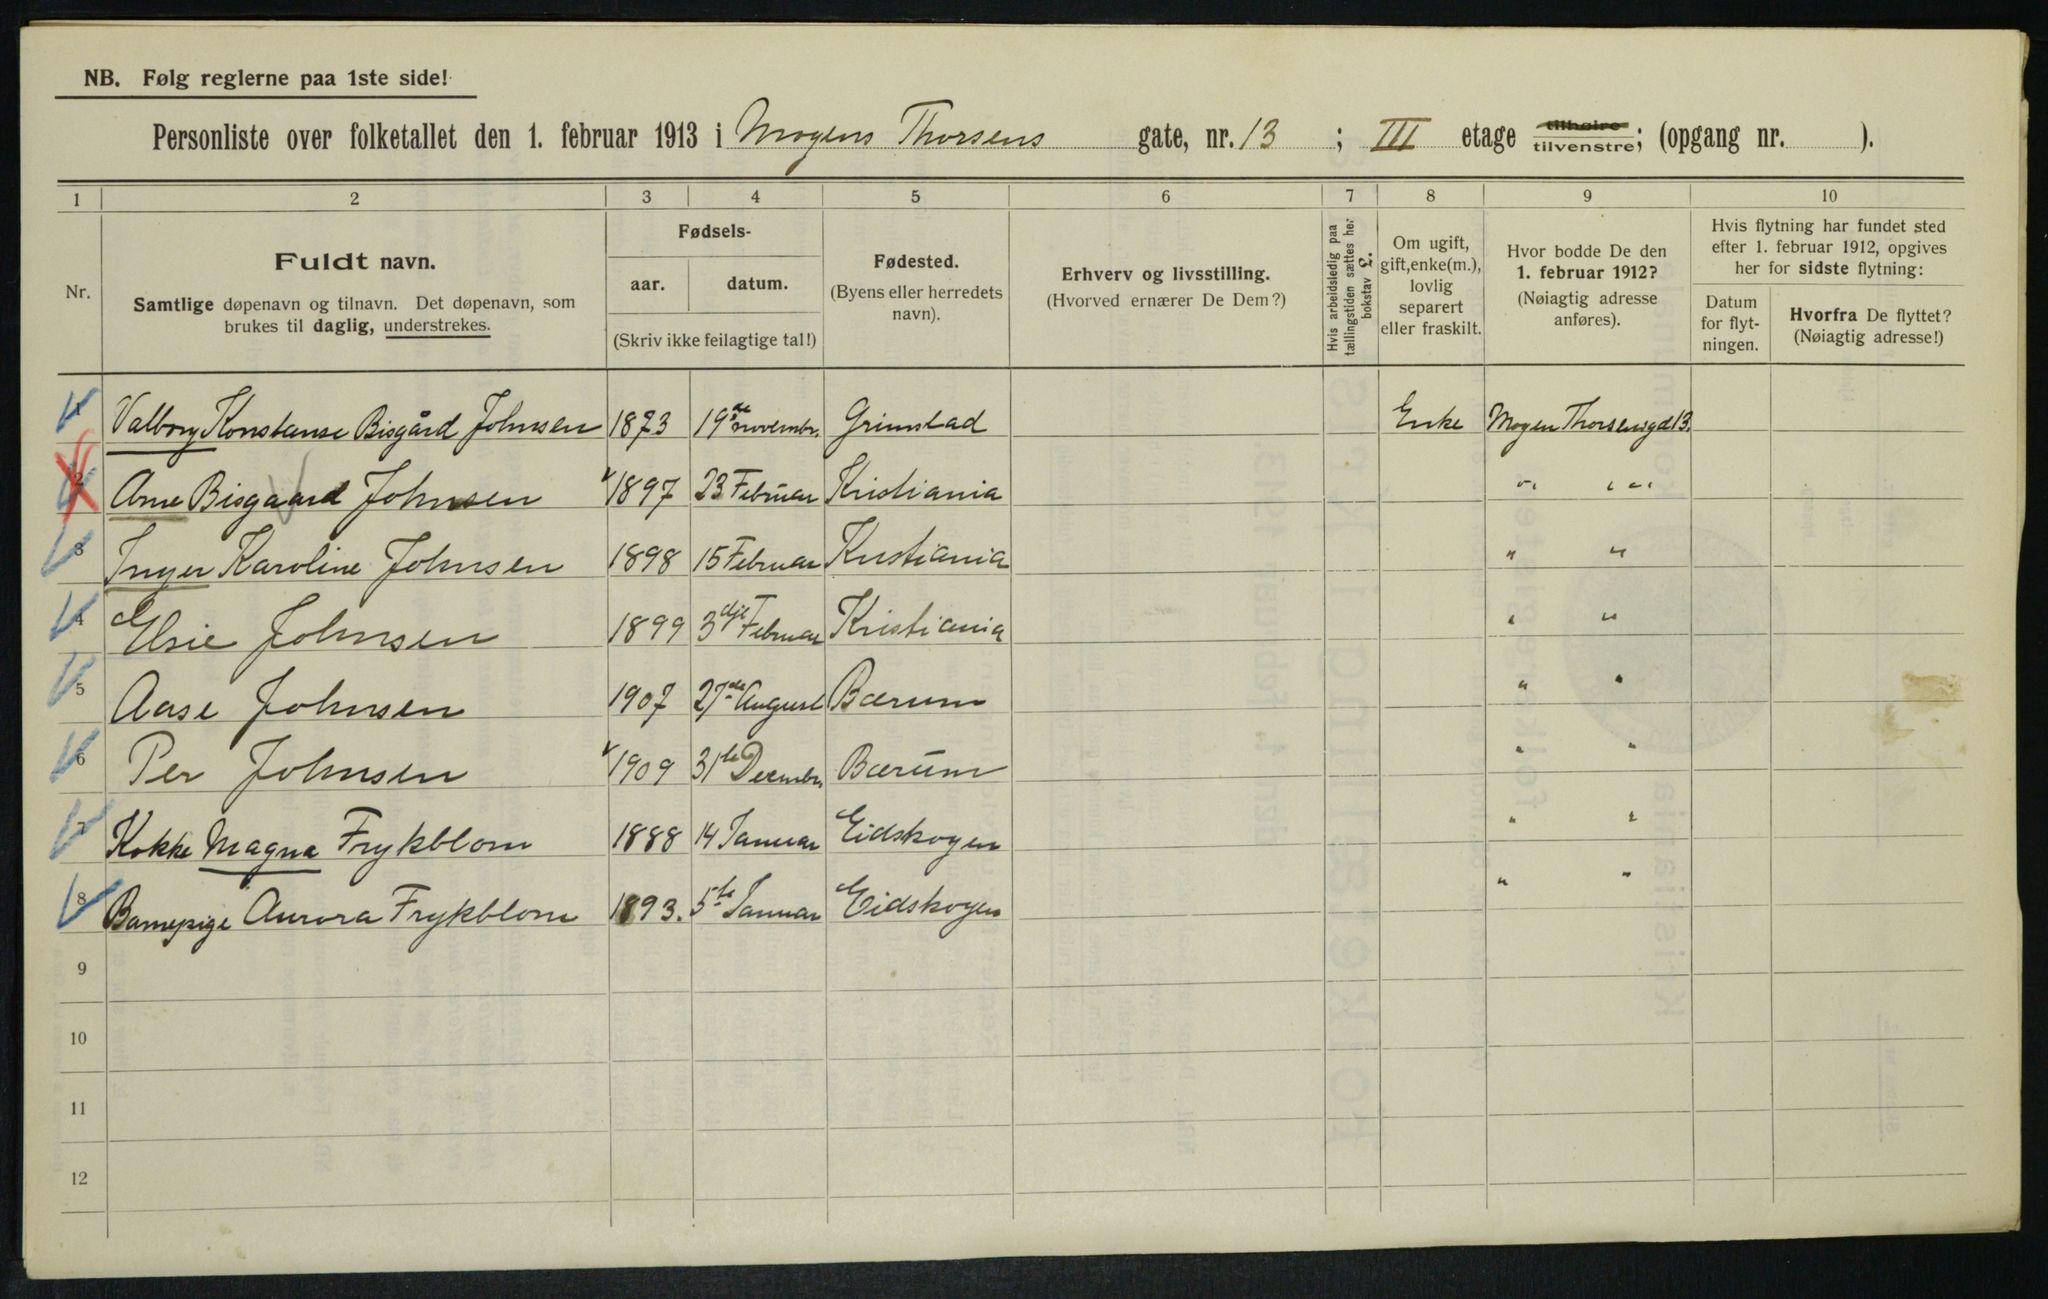 NB. Følg reglerne paa 1ste side!
Personliste over folketallet den 1. februar 1913 i Mogens Thorsens gate, nr. 13 ; III etage tilhøire tilvenstre; (opgang nr. ).
1 2 3 4 5 6 7 8 9 10
Nr.
Fuldt navn.
Samtlige døpenavn og tilnavn. Det døpenavn, som
brukes til daglig, understrekes.
Fødsels-
aar. datum.
(Skriv ikke feilagtige tal!)
Fødested.
(Byens eller herredets
navn).
Erhverv og livsstilling.
(Hvorved ernærer De Dem?)
Hvis arbeidsledig paa
tællingstiden sættes her
bokstav L.
Om ugift,
gift, enke(m.),
lovlig
separert
eller fraskilt.
Hvor bodde De den
1. februar 1912?
(Nøiagtig adresse
anføres).
Hvis flytning har fundet sted
efter 1. februar 1912, opgives
her for sidste flytning:
Datum
for flyt-
ningen.
Hvorfra De flyttet?
(Nøiagtig adresse!)
1 Valborg Konstanse Bisgård Johnsen 1873 19de novembr. Grimstad Enke Mogen Thorsensgd 13.
2 Arne Bisgaard Johnsen 1897 23 Februar Kristiania " "
3 Inger Karoline Johnsen 1898 15 Februar Kristiania " "
4 Elsie Johnsen 1899 3dje Februar Kristiania " "
5 Aase Johnsen 1907 27de August Bærum " "
6 Per Johnsen 1909 31te Decembr. Bærum " "
7 Kokke Magna Frykblom 1888 14 Januar Eidskogen " "
8 Barnepige Aurora Frykblom 1893. 5te Januar Eidskogen " "
9
10
11
12